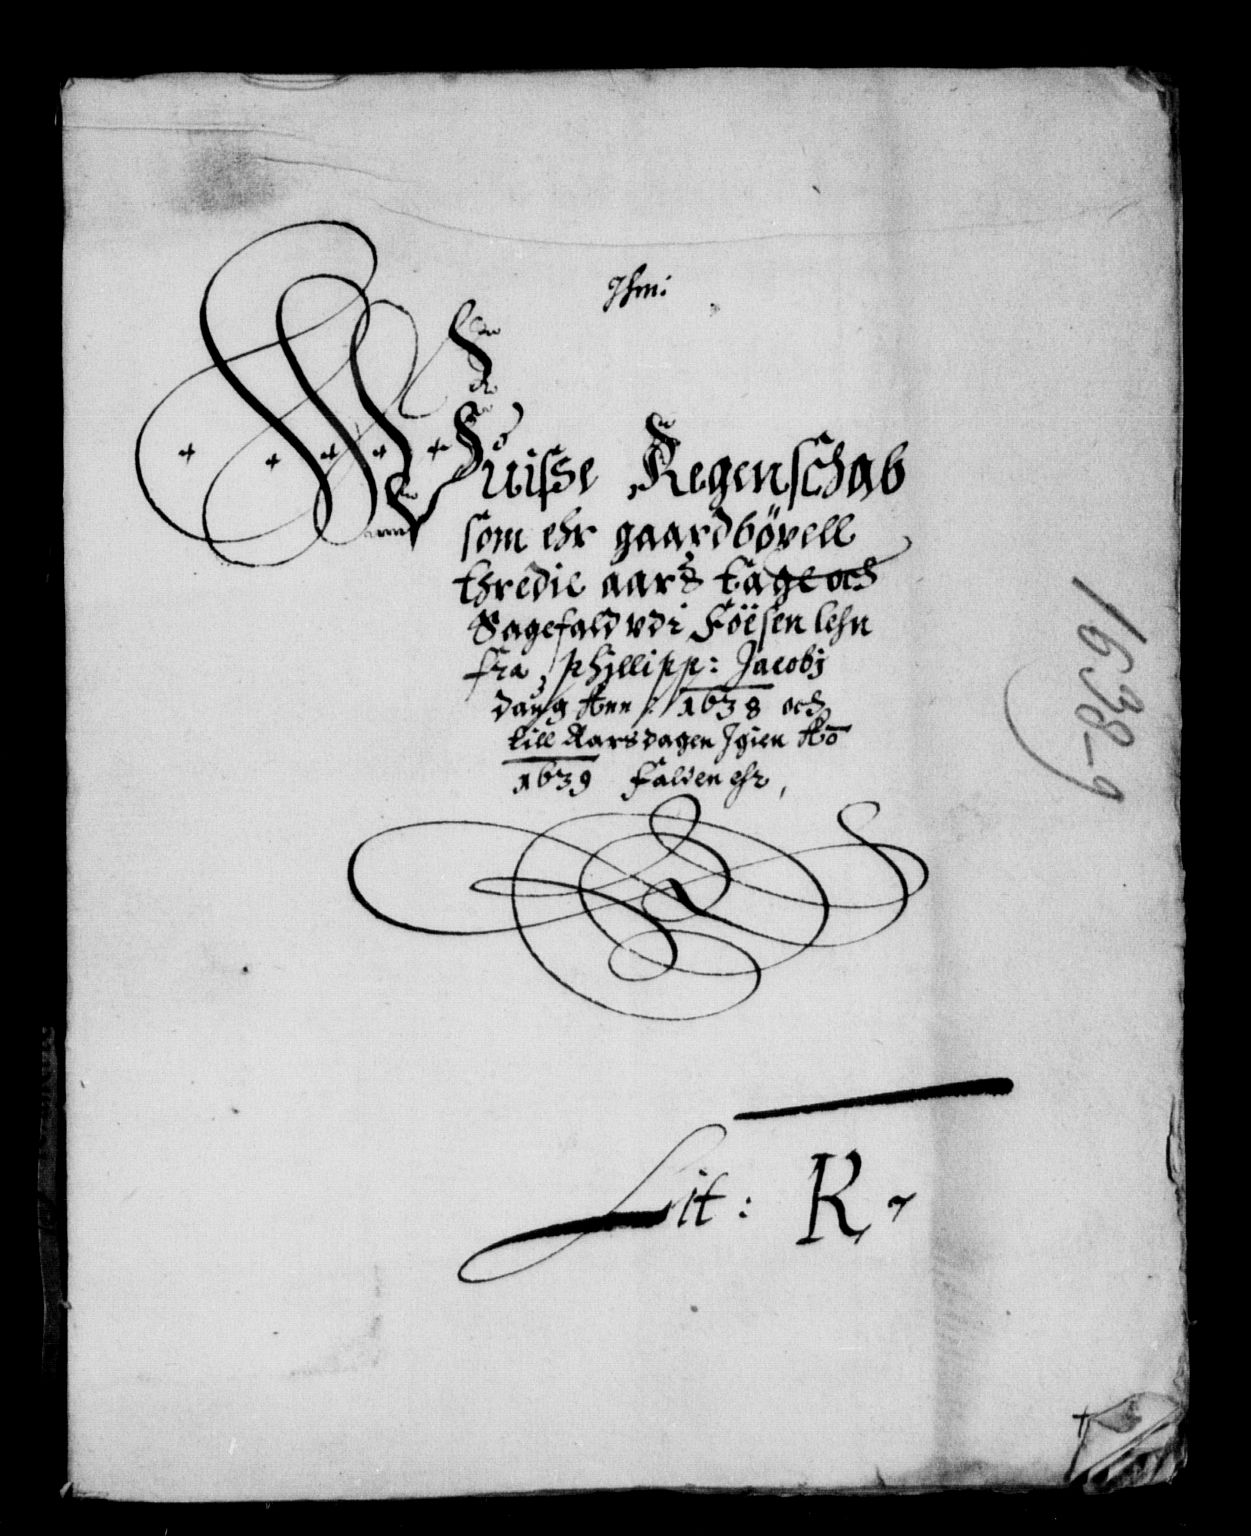 Ihm:
Wuisse Regenschab
som ehr gaardbövell
thredie aars tage och
Sagefald vdi Föesen lehn
fra phillipp: Jacobj
daug Ann: 1638 och
till Aarsdagen Igien Ao
1639 falden ehr,
Lit: R
1638-9